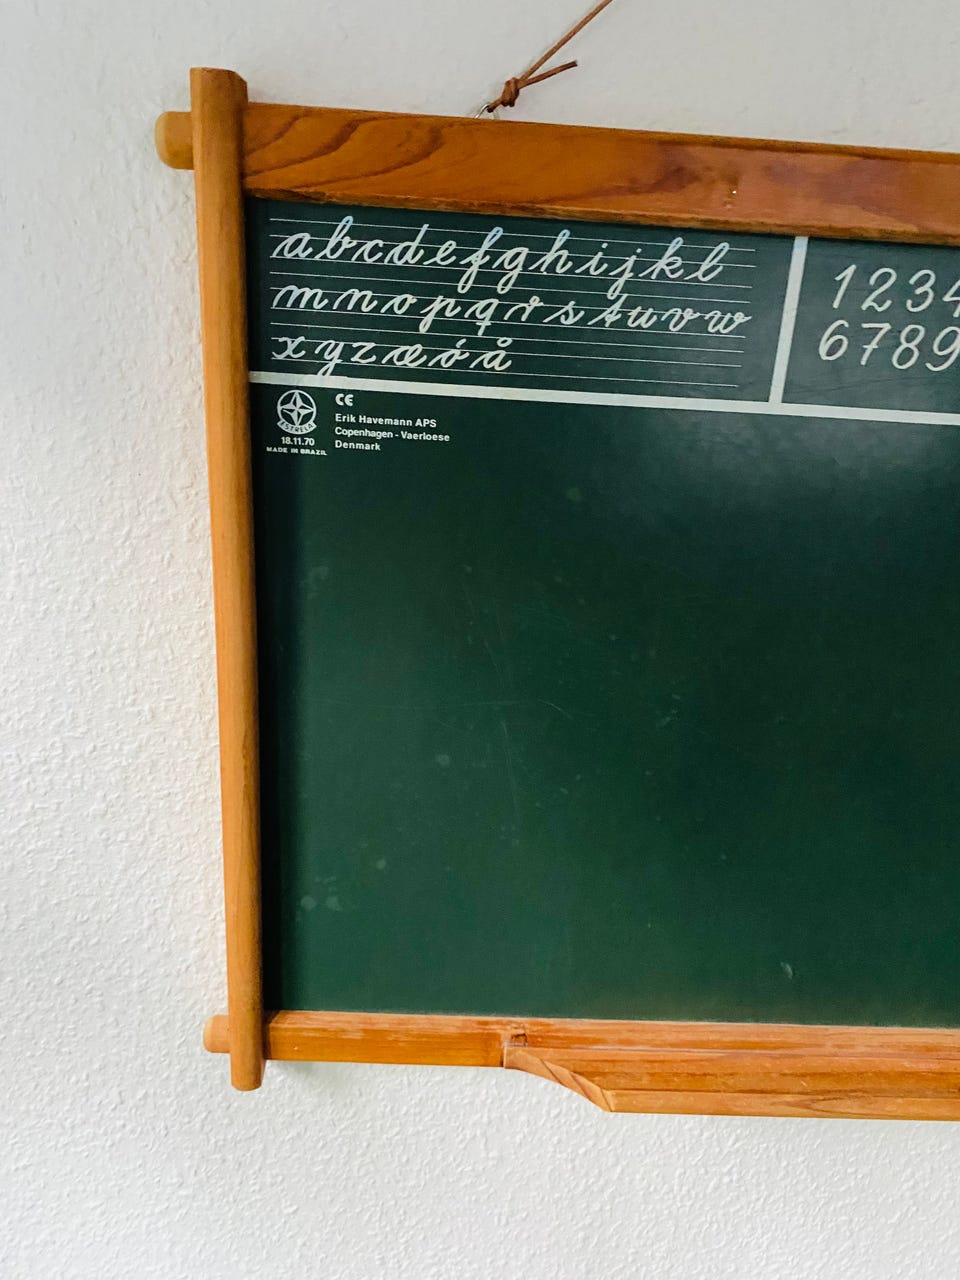 abcdefghijkl
mnopqrstuvw
xyzæǿå
1234
6789
ESTRELA
18.11.70
MADE IN BRAZIL
CE
Erik Havemann APS
Copenhagen - Vaerloese
Denmark